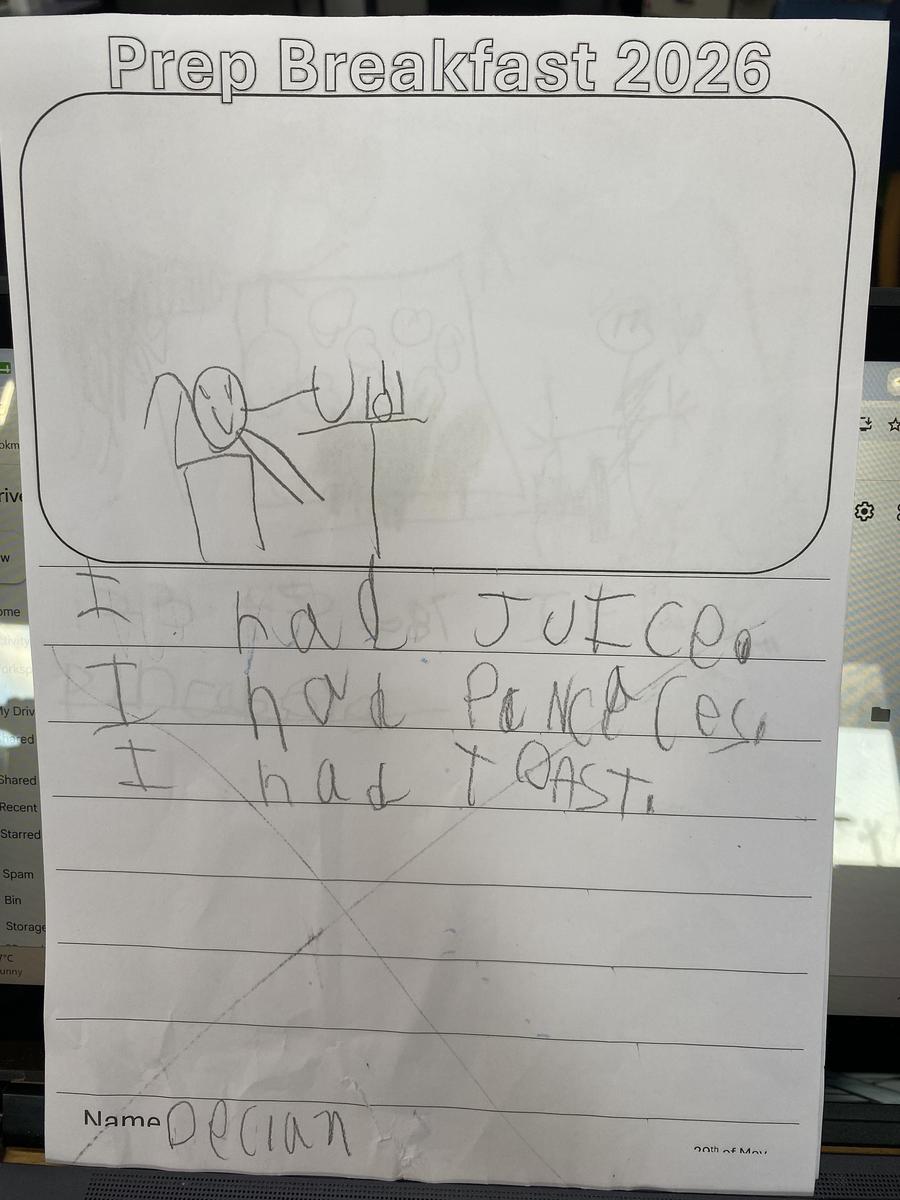 Prep Breakfast 2026
I had JUICe.
I had PaNCACes.
I had TOAST.
Name Declan
20th of May
My Driv
Shared
Recent
Starred
Spam
Bin
Storage